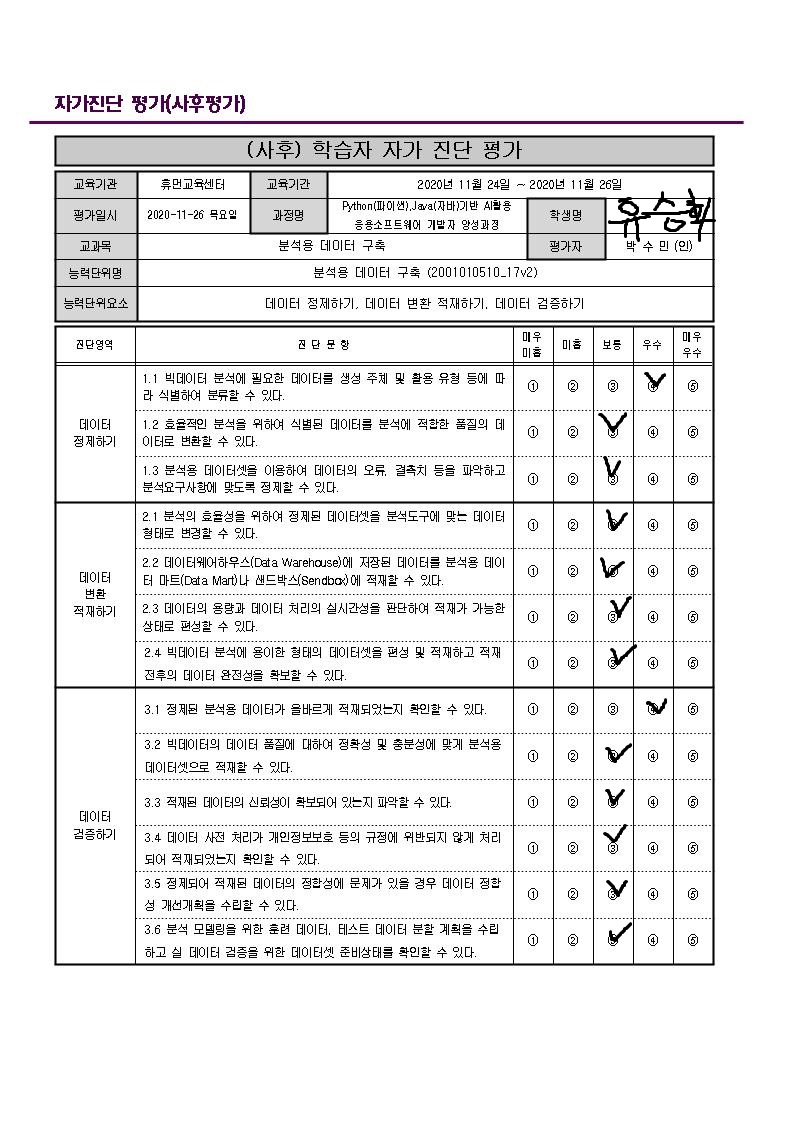 자가진단 평가(사후평가)
(사후) 학습자 자가 진단 평가
교육기관 휴먼교육센터 교육기간 2020년 11월 24일 ~ 2020년 11월 26일
평가일시 2020-11-26 목요일 과정명 Python(파이썬),Java(자바)기반 AI활용
응용소프트웨어 개발자 양성과정 학생명 유승희
교과목 분석용 데이터 구축 평가자 박 수 민 (인)
능력단위명 분석용 데이터 구축 (2001010510_17v2)
능력단위요소 데이터 정제하기, 데이터 변환 적재하기, 데이터 검증하기
진단영역 진 단 문 항 매우 미흡 미흡 보통 우수 매우 우수
데이터
정제하기
1.1 빅데이터 분석에 필요한 데이터를 생성 주체 및 활용 유형 등에 따
라 식별하여 분류할 수 있다. ① ② ③ ④ ⑤
1.2 효율적인 분석을 위하여 식별된 데이터를 분석에 적합한 품질의 데
이터로 변환할 수 있다. ① ② ③ ④ ⑤
1.3 분석용 데이터셋을 이용하여 데이터의 오류, 결측치 등을 파악하고
분석요구사항에 맞도록 정제할 수 있다. ① ② ③ ④ ⑤
데이터
변환
적재하기
2.1 분석의 효율성을 위하여 정제된 데이터셋을 분석도구에 맞는 데이터
형태로 변경할 수 있다. ① ② ③ ④ ⑤
2.2 데이터웨어하우스(Data Warehouse)에 저장된 데이터를 분석용 데이
터 마트(Data Mart)나 샌드박스(Sendbox)에 적재할 수 있다. ① ② ③ ④ ⑤
2.3 데이터의 용량과 데이터 처리의 실시간성을 판단하여 적재가 가능한
상태로 편성할 수 있다. ① ② ③ ④ ⑤
2.4 빅데이터 분석에 용이한 형태의 데이터셋을 편성 및 적재하고 적재
전후의 데이터 완전성을 확보할 수 있다. ① ② ③ ④ ⑤
데이터
검증하기
3.1 정제된 분석용 데이터가 올바르게 적재되었는지 확인할 수 있다. ① ② ③ ④ ⑤
3.2 빅데이터의 데이터 품질에 대하여 정확성 및 충분성에 맞게 분석용
데이터셋으로 적재할 수 있다. ① ② ③ ④ ⑤
3.3 적재된 데이터의 신뢰성이 확보되어 있는지 파악할 수 있다. ① ② ③ ④ ⑤
3.4 데이터 사전 처리가 개인정보보호 등의 규정에 위반되지 않게 처리
되어 적재되었는지 확인할 수 있다. ① ② ③ ④ ⑤
3.5 정제되어 적재된 데이터의 정합성에 문제가 있을 경우 데이터 정합
성 개선계획을 수립할 수 있다. ① ② ③ ④ ⑤
3.6 분석 모델링을 위한 훈련 데이터, 테스트 데이터 분할 계획을 수립
하고 실 데이터 검증을 위한 데이터셋 준비상태를 확인할 수 있다. ① ② ③ ④ ⑤